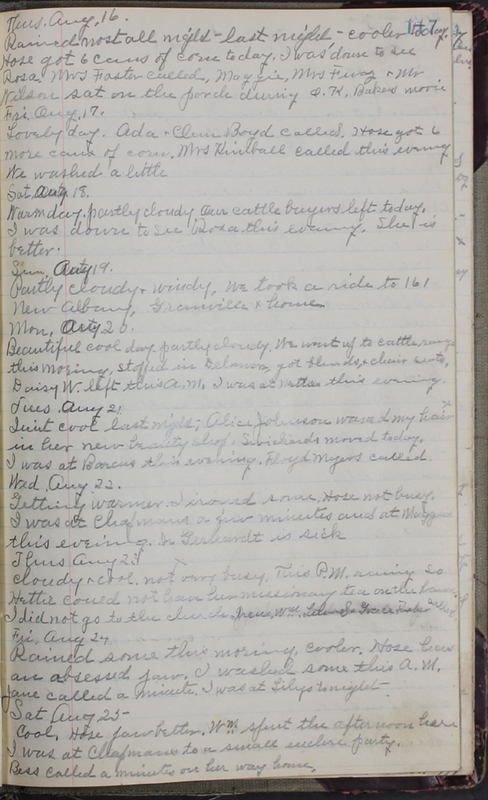 147
Thus. Aug. 16.
Rained most all night - last night - cooler today.
Hose got 6 cans of corn today. I was down to see
Rosa. Mrs Foster called, Maggie, Mrs & Mr
Wilson sat on the porch during S.K. Bakers movie
Fri. Aug. 17.
Lovely day. Ada & Clem Boyd called. Hose got 6
more cans of corn. Mrs Kimball called this evening
We washed a little
Sat. Aug 18.
Warm day, partly cloudy, Our cattle buyers left today.
I was down to see Rosa this evening. She is
better.
Sun, Aug 19.
Partly cloudy & windy, We took a ride to 161
New Albany, Granville & home
Mon, Aug 20.
Beautiful cool day, partly cloudy. We went up to cattle
this morning, stopped in Delaware, got & chair seats,
Daisy W. left this A.M. I was at Hetties this evening.
Tues. Aug 21
Quit cool last night; Alice Johnson waved my hair
in her new beauty shop. Swickards moved today.
I was at this evening. Floyd Myers called.
Wed, Aug 22.
Getting warmer. I ironed some, Hose not busy.
I was at Chapmans a few minutes and at Maggies
this evening. Gerhardt is sick
Thus Aug 23
Cloudy & cool, not very busy, This P.M. so
Hettie could not have her missionary tea on the lawn.
I did not go to the church. Wm.
Fri, Aug 24
Rained some this morning, cooler. Hose has
an absessed jaw. I washed some this A.M.
Jane called a minute. I was at Lilys tonight
Sat Aug 25-
Cool, Hose jaw better. Wm. spent the afternoon here
I was at Chapmans to a small party.
Bess called a minutes on her way home.